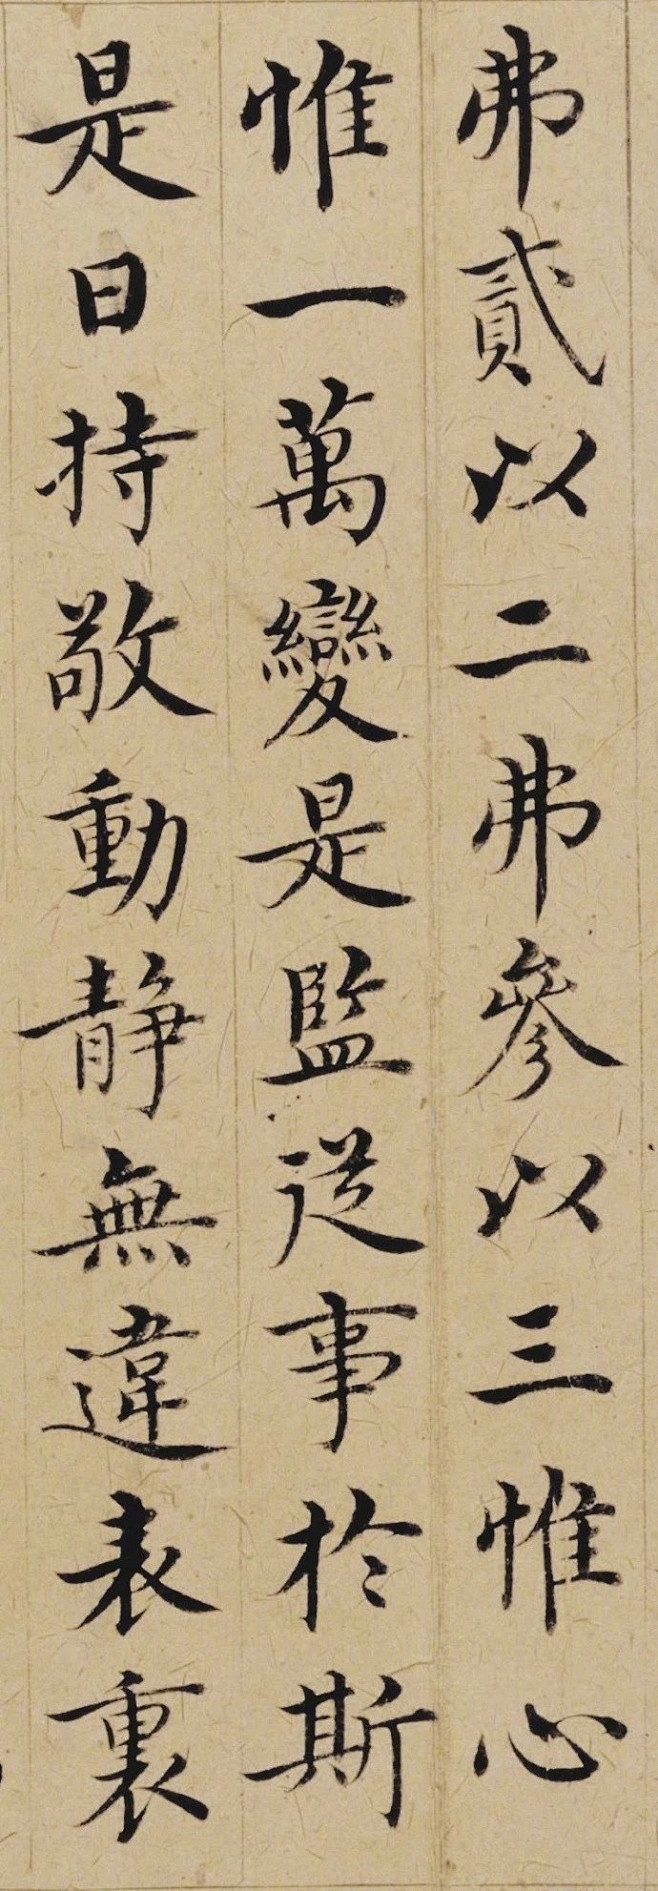 弗貳以二弗參以三惟心
惟一萬變是監從事於斯
是曰持敬動靜無違表裏